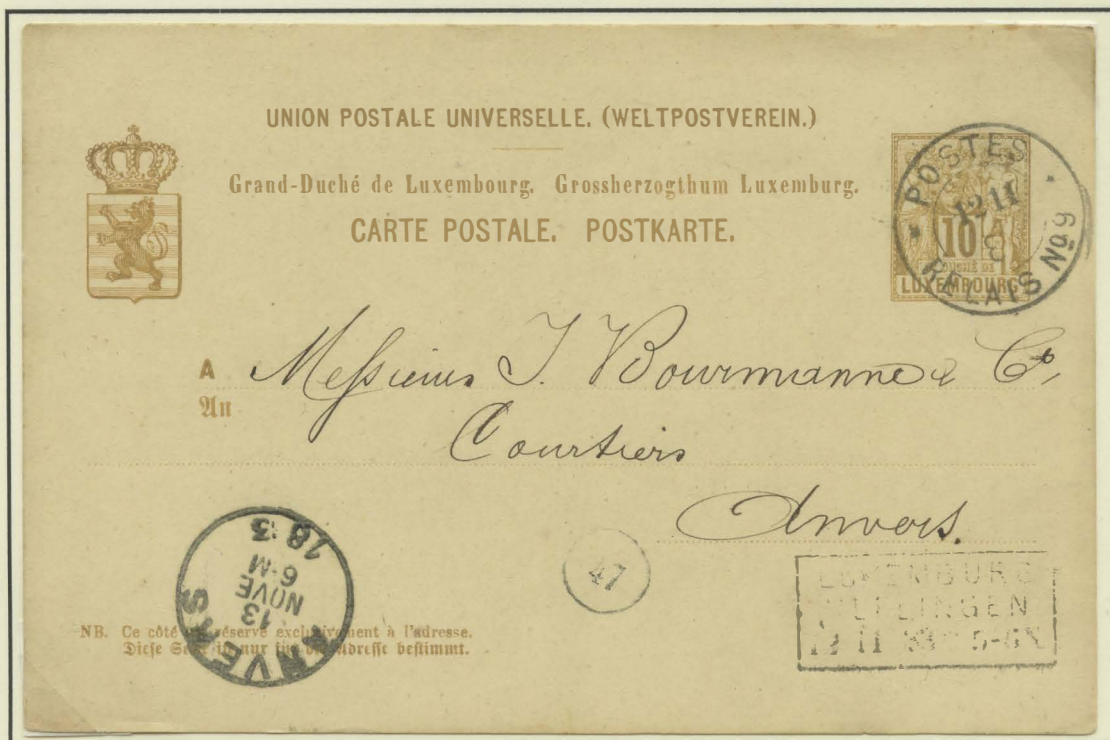 UNION POSTALE UNIVERSELLE. (WELTPOSTVEREIN.)
Grand-Duché de Luxembourg. Grossherzogthum Luxemburg.
CARTE POSTALE. POSTKARTE.
10
LUXEMBOURG
POSTES
12 11
RELAIS No 9
A Messieurs J. Bourmanne & Co,
An
Courtiers
Anvers.
ANVERS
13
NOVE
6-M
47
LUXEMBURG
NB. Ce côté est réservé exclusivement à l'adresse.
Diese Seite ist nur für die Adresse bestimmt.